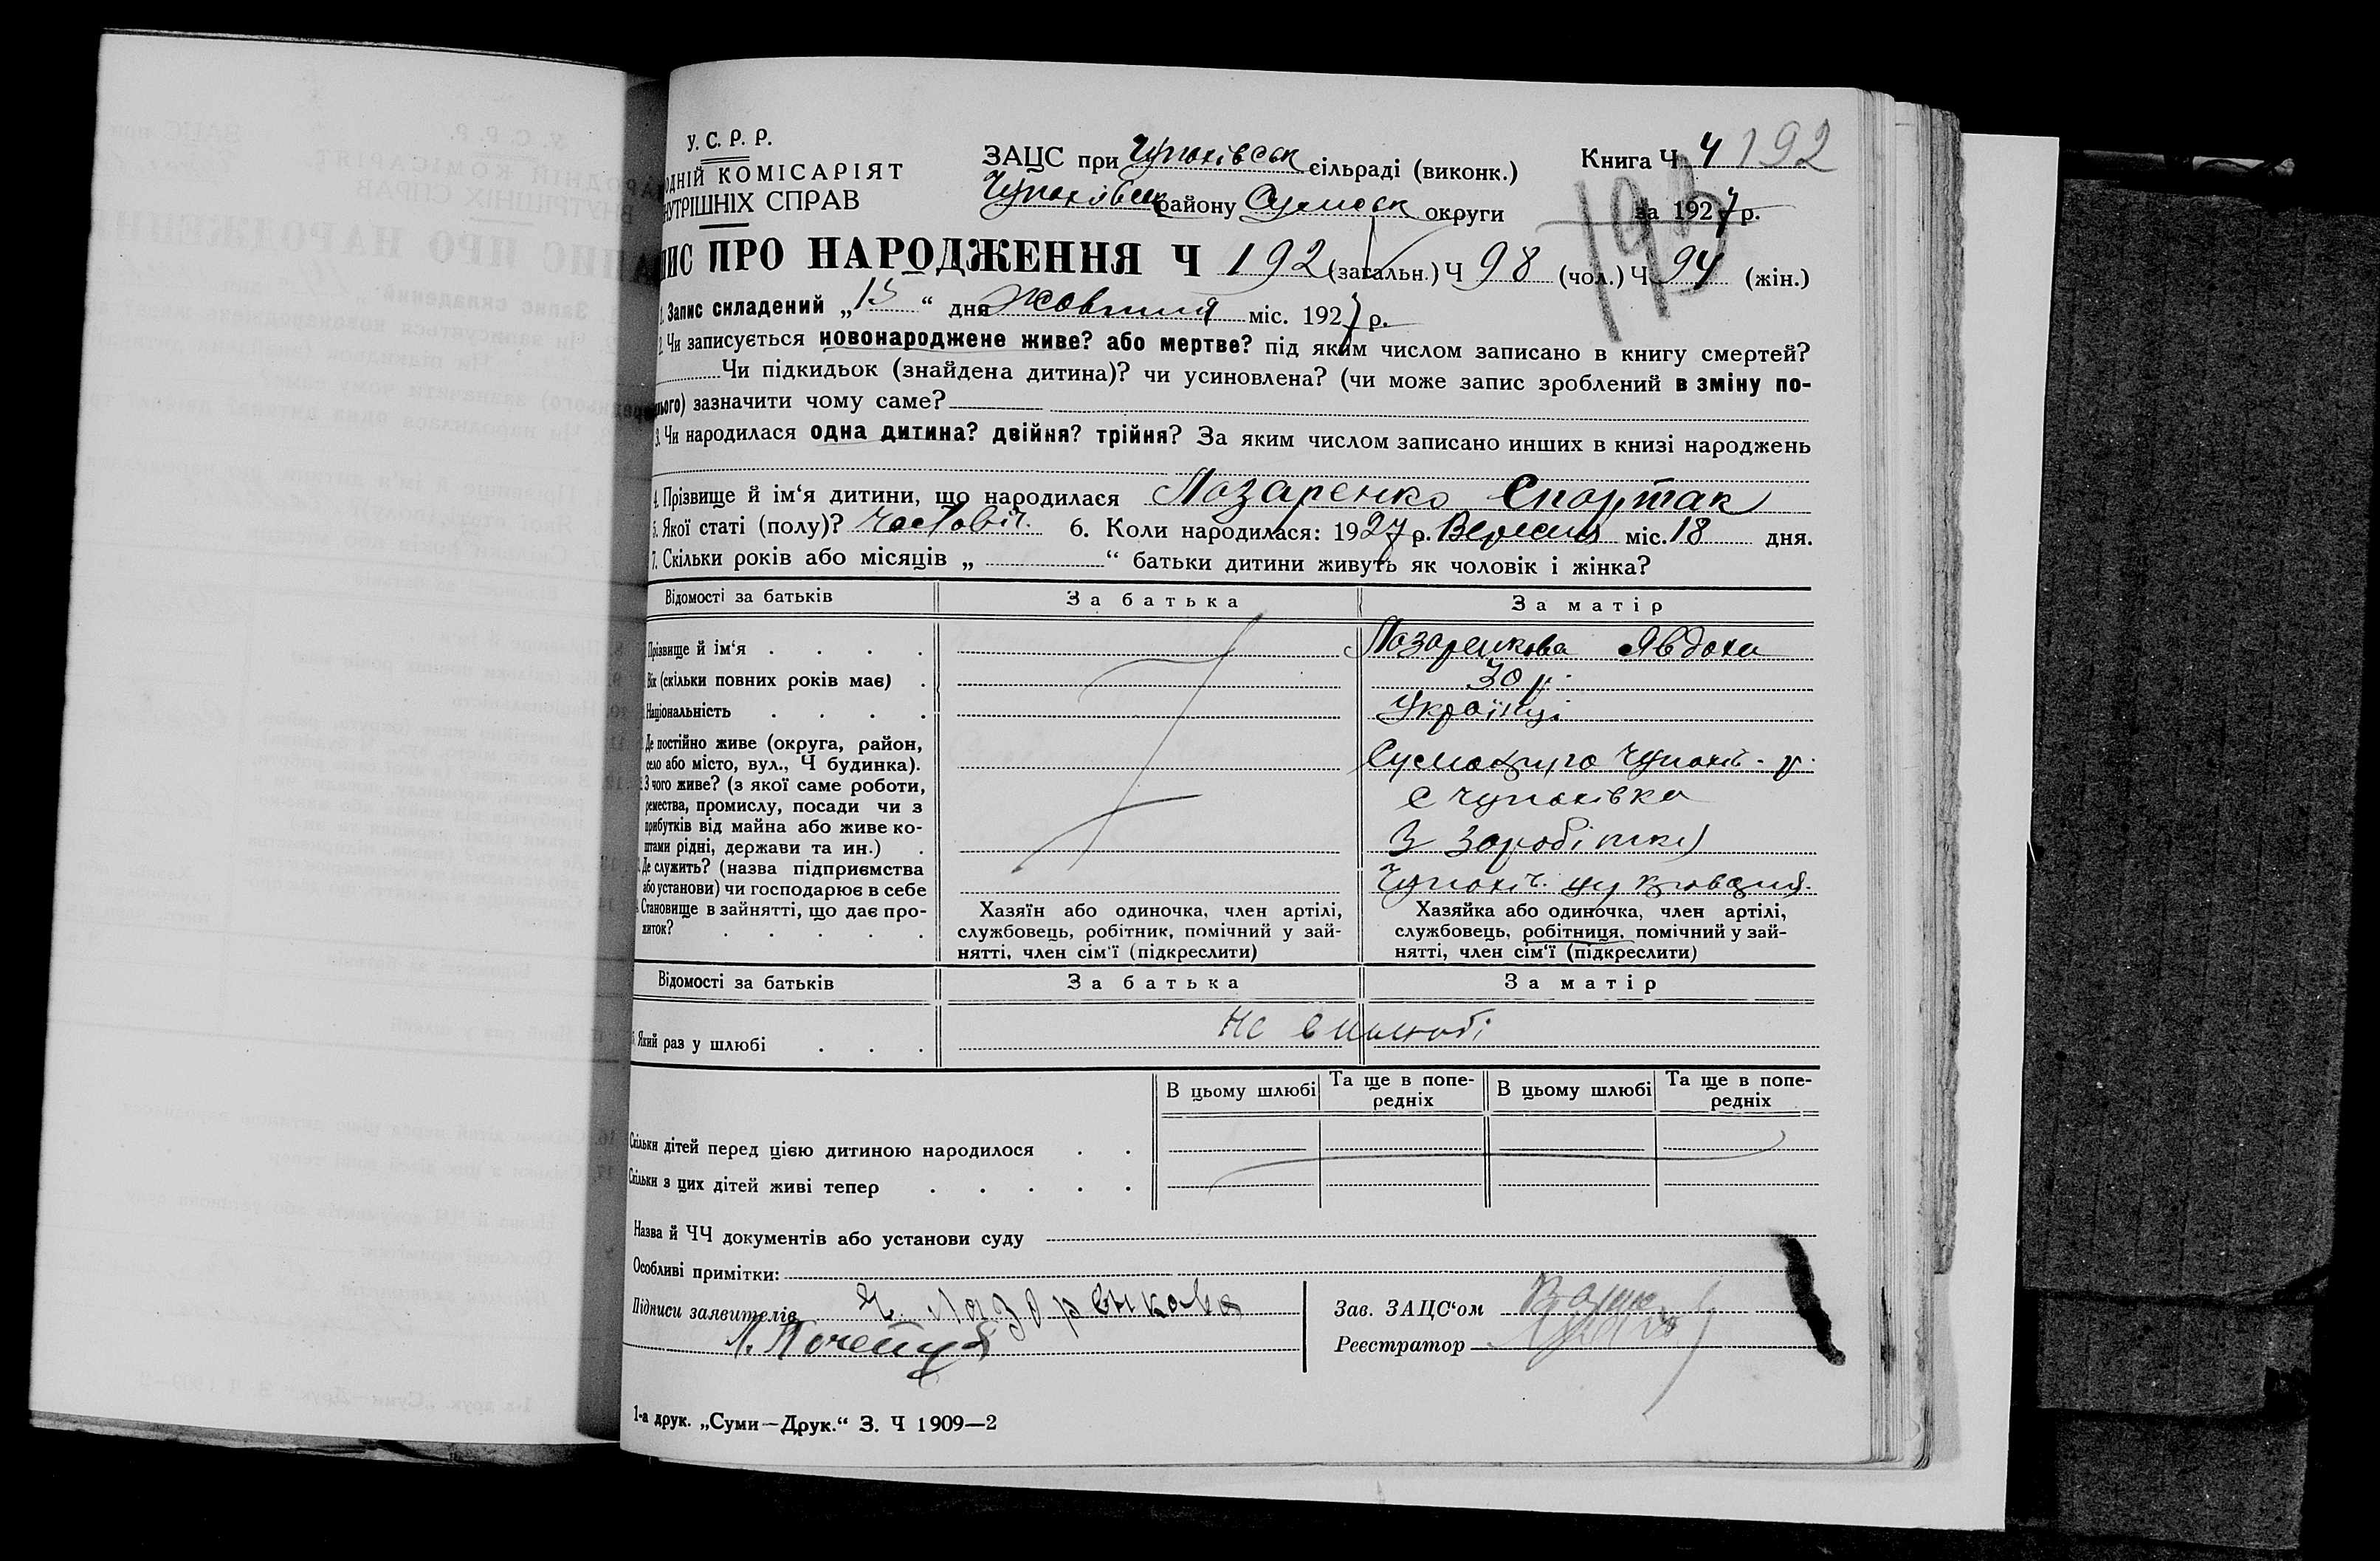 У. С. Р. Р.
ОДНІЙ КОМІСАРІЯТ
НУТРІШНІХ СПРАВ
ЗАЦС при Чупахівськ сільраді (виконк.)
Чупахівськ району Сумськ округи
Книга Ч 4 192
193
за 1927 р.
ПИС ПРО НАРОДЖЕННЯ Ч 192 (загальн.) Ч 98 (чол.) Ч 94 (жін.)
1. Запис складений „ 15 “ дня жовтня міс. 1927 р.
2. Чи записується новонароджене живе? або мертве? під яким числом записано в книгу смертей?
Чи підкидьок (знайдена дитина)? чи усиновлена? (чи може запис зроблений в зміну по-
нього) зазначити чому саме?
3. Чи народилася одна дитина? двійня? трійня? За яким числом записано инших в книзі народжень
4. Прізвище й ім‘я дитини, що народилася Лазаренко Спартак
5. Якої статі (полу)? 6. Коли народилася: 1927 р. Вересня міс. 18 дня.
7. Скільки років або місяців „ “ батьки дитини живуть як чоловік і жінка?
Відомості за батьків За батька За матір
Прізвище й ім‘я . . . . Лазаренкова Явдоха
Вік (скільки повних років має) . 30 р.
Національність . . . . Українці
Де постійно живе (округа, район,
село або місто, вул., Ч будинка). Сумокруга Чупахів. р.
З чого живе? (з якої саме роботи, с Чупахівка
ремества, промислу, посади чи з
прибутків від майна або живе ко- З заробітків
штами рідні, держави та ин.) .
Де служить? (назва підприємства
або установи) чи господарює в себе Чупахів.
Становище в зайнятті, що дає про-
житок? . . . . .
Хазяїн або одиночка, член артілі,
службовець, робітник, помічний у зай-
нятті, член сім‘ї (підкреслити)
Хазяйка або одиночка, член артілі,
службовець, робітниця, помічний у зай-
нятті, член сім‘ї (підкреслити)
Відомості за батьків За батька За матір
Який раз у шлюбі . . . Не в шлюбі
В цьому шлюбі Та ще в попе-
редніх В цьому шлюбі Та ще в попе-
редніх
Скільки дітей перед цією дитиною народилося . .
Скільки з цих дітей живі тепер . . . . .
Назва й ЧЧ документів або установи суду
Особливі примітки:
Підписи заявителів Я. Лазаренкова
Зав. ЗАЦС‘ом
Реєстратор
1-а друк. „Суми—Друк.“ З. Ч 1909—2